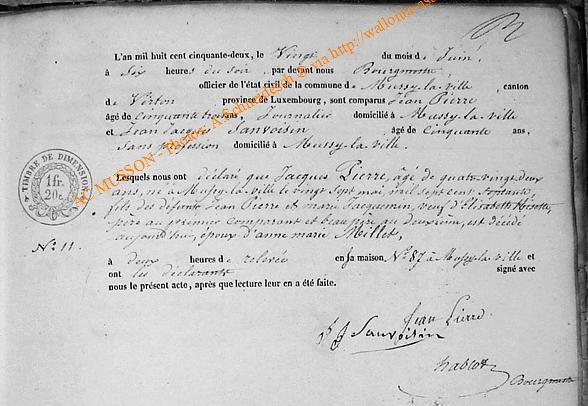 L'an mil huit cent cinquante-deux, le Vingt du mois de Juin
à Six heures du soir, par devant nous Bourgmestre
officier de l'état civil de la commune de Mussy-la-ville, canton
de Virton province de Luxembourg, sont comparus Jean Pierre
âgé de Cinquante trois ans, Journalier domicilié à Mussy-la-ville
et Jean Jacques Sanvoisin âgé de Cinquante ans,
Sans profession domicilié à Mussy-la-ville.
Lesquels nous ont déclaré que Jacques Pierre, âgé de quatre vingt deux
ans, né à Mussy-la-ville le vingt Sept mai mil Sept cent
fils des défunts Jean Pierre et marie Jacquemin, veuf d'Elisabeth
père au premier Comparant et beau père au deuxième, est décédé
aujourd'hui, époux d'anne marie Millet,
à deux heures de relevée en sa maison N° 87 à Mussy-la-ville et
ont les déclarants signé avec
nous le présent acte, après que lecture leur en a été faite.
N° 11.
TIMBRE DE DIMENSION
1fr.
20c.
Jean Pierre
J J Sanvoisin
Bourgmestre
MUSSON - Photos: A.Schneidesch @ via http://wallonia-asbl